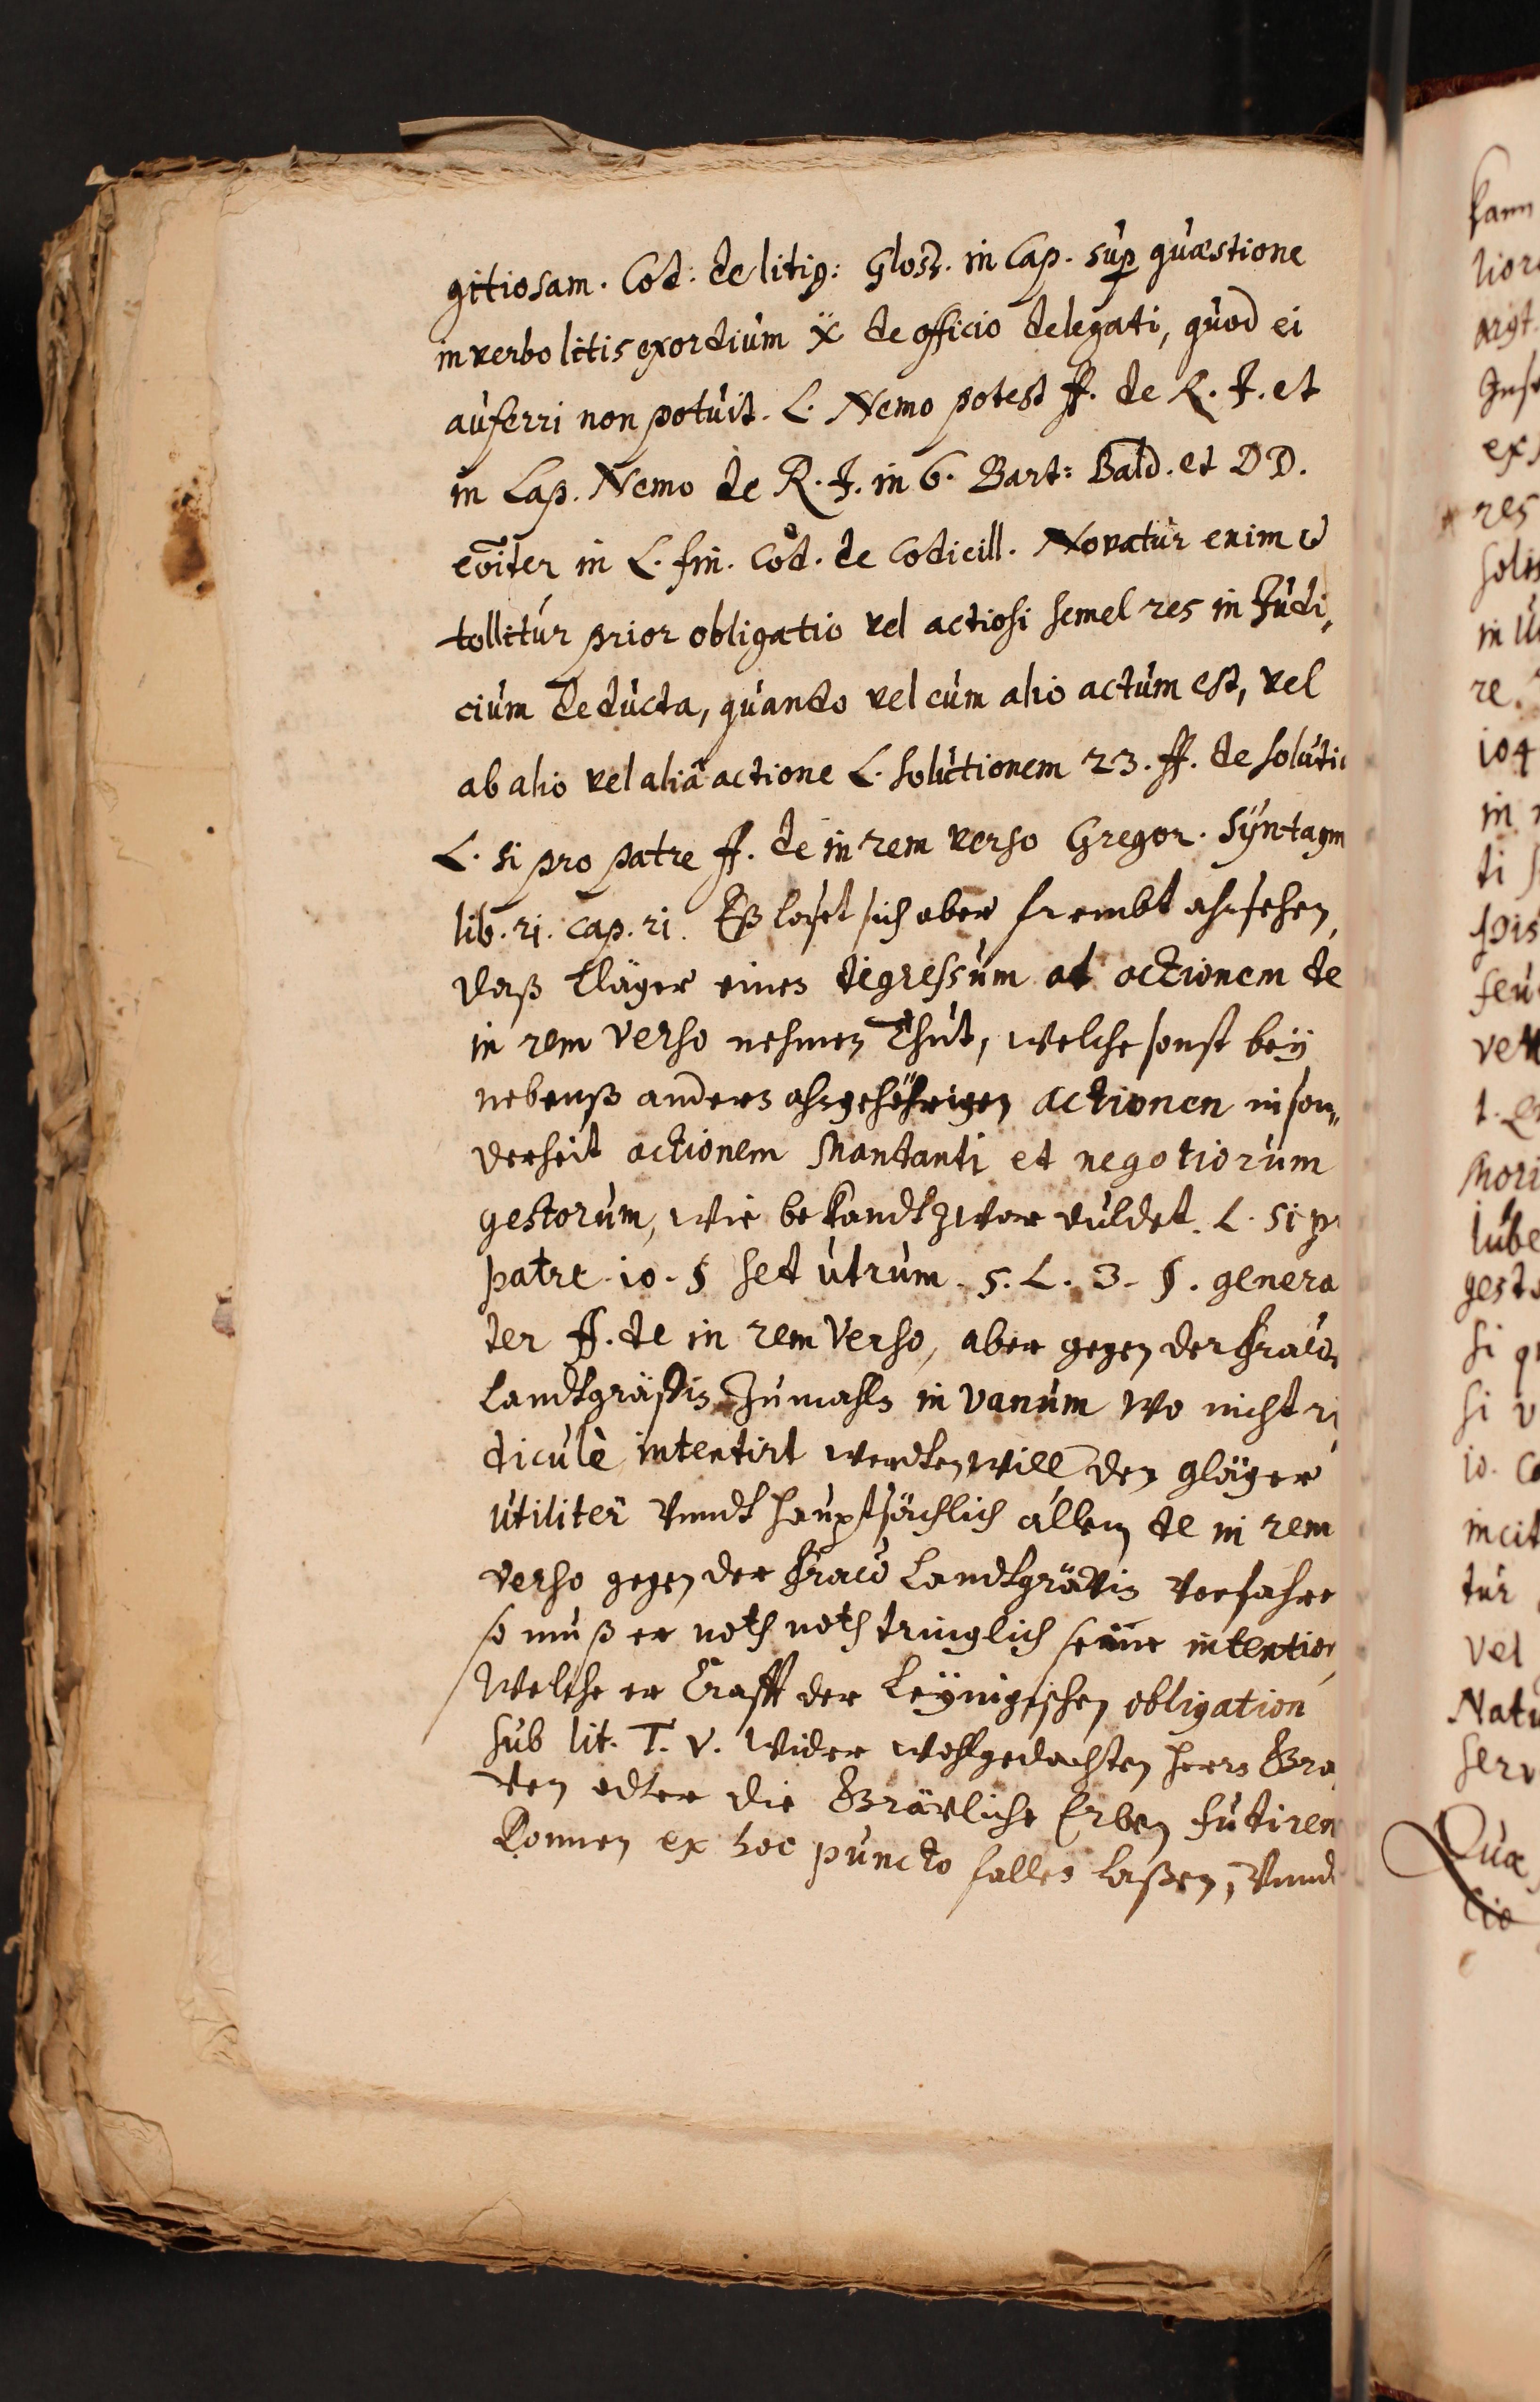 gitiosam. Cod: de litig: Gloss. in Cap. sup quæstione
in verbo litis exordium X de officio delegati, quod ei
auferri non potuit. L. Nemo potest ff. de R. J. et
in Cap. Nemo de R. J. in 6. Bart: Bald. et DD.
coiter in L. fin. Cod. de Codicill. Novatur enim et
tollitur prior obligatio vel actio si semel res in Judi„
cium deducta, quando vel cum alio actum est, vel
ab alio vel aliâ actione L. Solutionem 23. ff. de solutio
L. si pro patre ff. de in rem verso Gregor. Syntagm
lib. 21. cap. 21. Eß leßet sich aber frembt ahnsehen,
daß Kläger einen digressum ad actionem de
in rem verso nehmen Thut, welche sonst beÿ
nebenß andern ahngehörigen actionen inson„
derheit actionem Mandanti et negotiorum
gestorum, wie bekandt zwar duldet. L. si pr
patre. 10. § sed utrum. 5. L. 3. §. genera
ter ff. de in rem verso, aber gegen der Fraw
Landtgräffin Zumahln in vanum wo nicht ri
diculè intentirt werden, will den Kläger
utiliter unndt hauptsächlich allein de in rem
verso gegen der Fraw Landtgrävin verfahre
so muß er noth noth tringlich seine intention
welche er Crafft der Leÿnigischen obligation
sub lit. T. V. wider wohlgedachten Herrn Gra
ven odter die Grävliche Erben futiren
Können ex hoc puncto fallen laßen, unnd
kann
res
re.
104
ti
ver
gesto
si
si v
10.
tur
vel
Natu
serv
Quæ